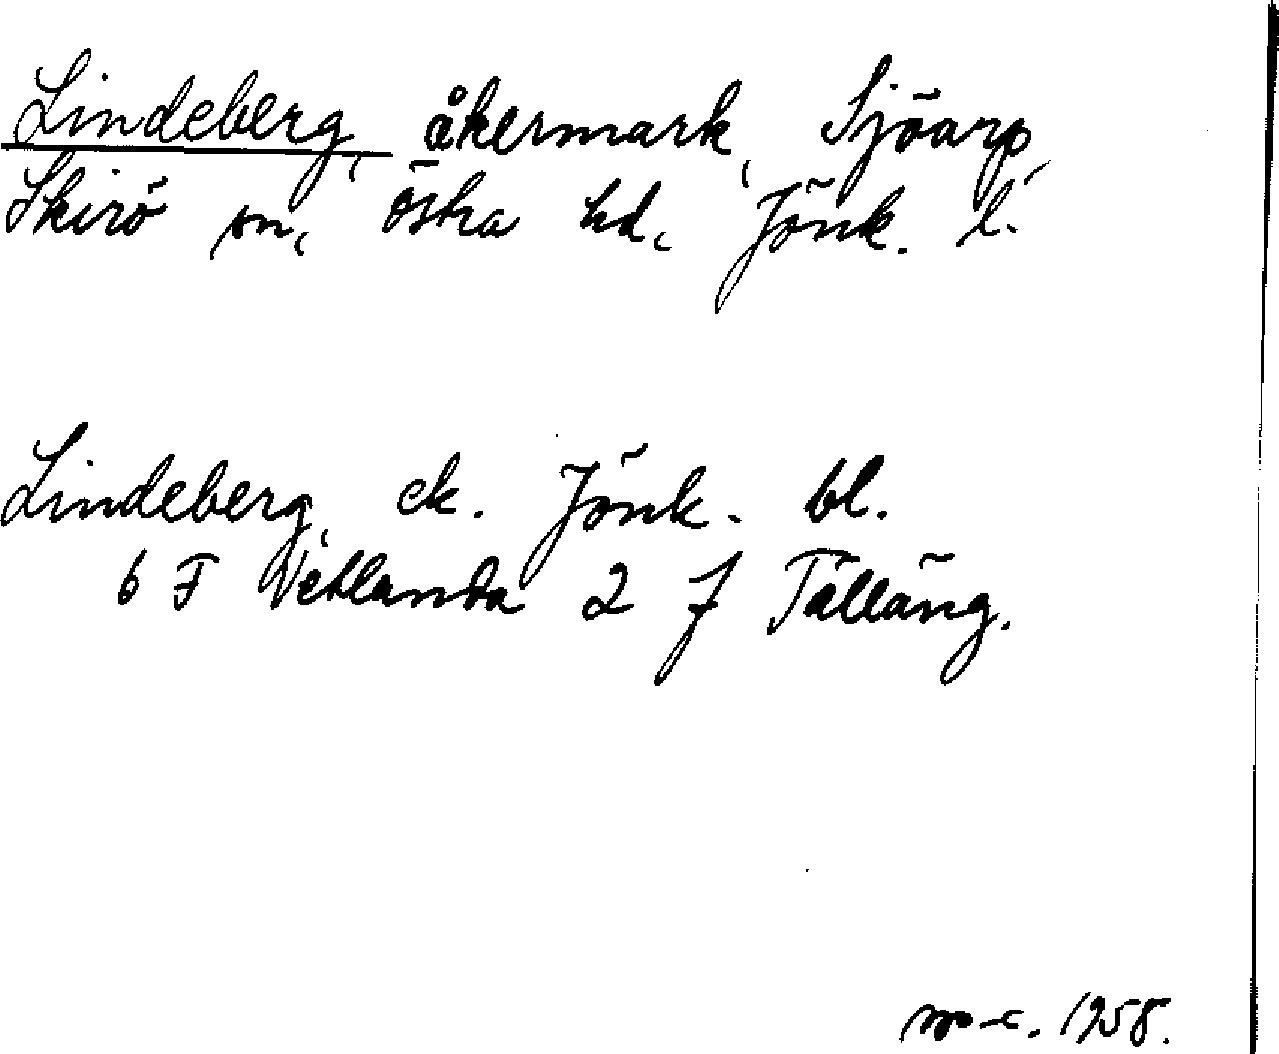 Lindeberg, åkermark, Sjöarp,
Skirö sn, Östra hd, Jönk. l.
Lindeberg, ek. Jönk. bl.
6 F Vetlanda 2 J Tälläng.
1958.